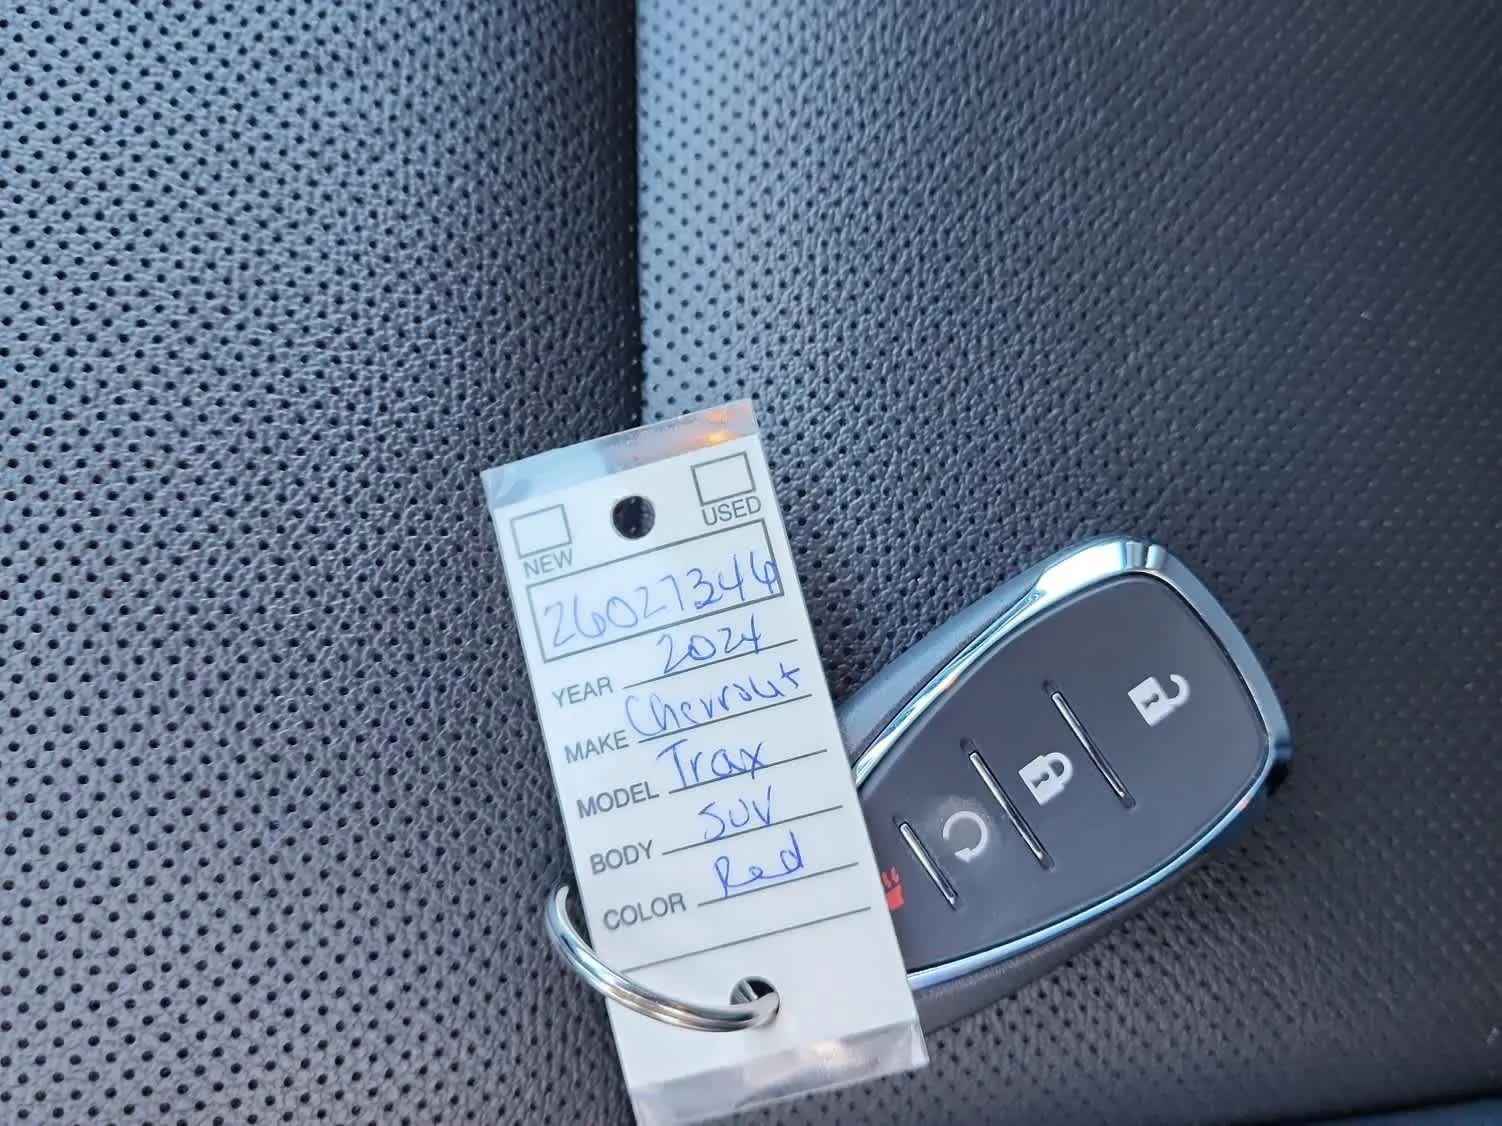 NEW USED
26027344
YEAR 2024
MAKE Chevrolet
MODEL Trax
BODY SUV
COLOR Red